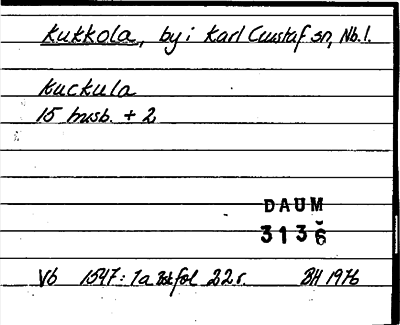 Kukkola, by i Karl Gustaf sn, Nb.l.
Kuckula
15 husb. + 2
DAUM
3136
Vb 1547: 1a fol 22 r. BH 1976